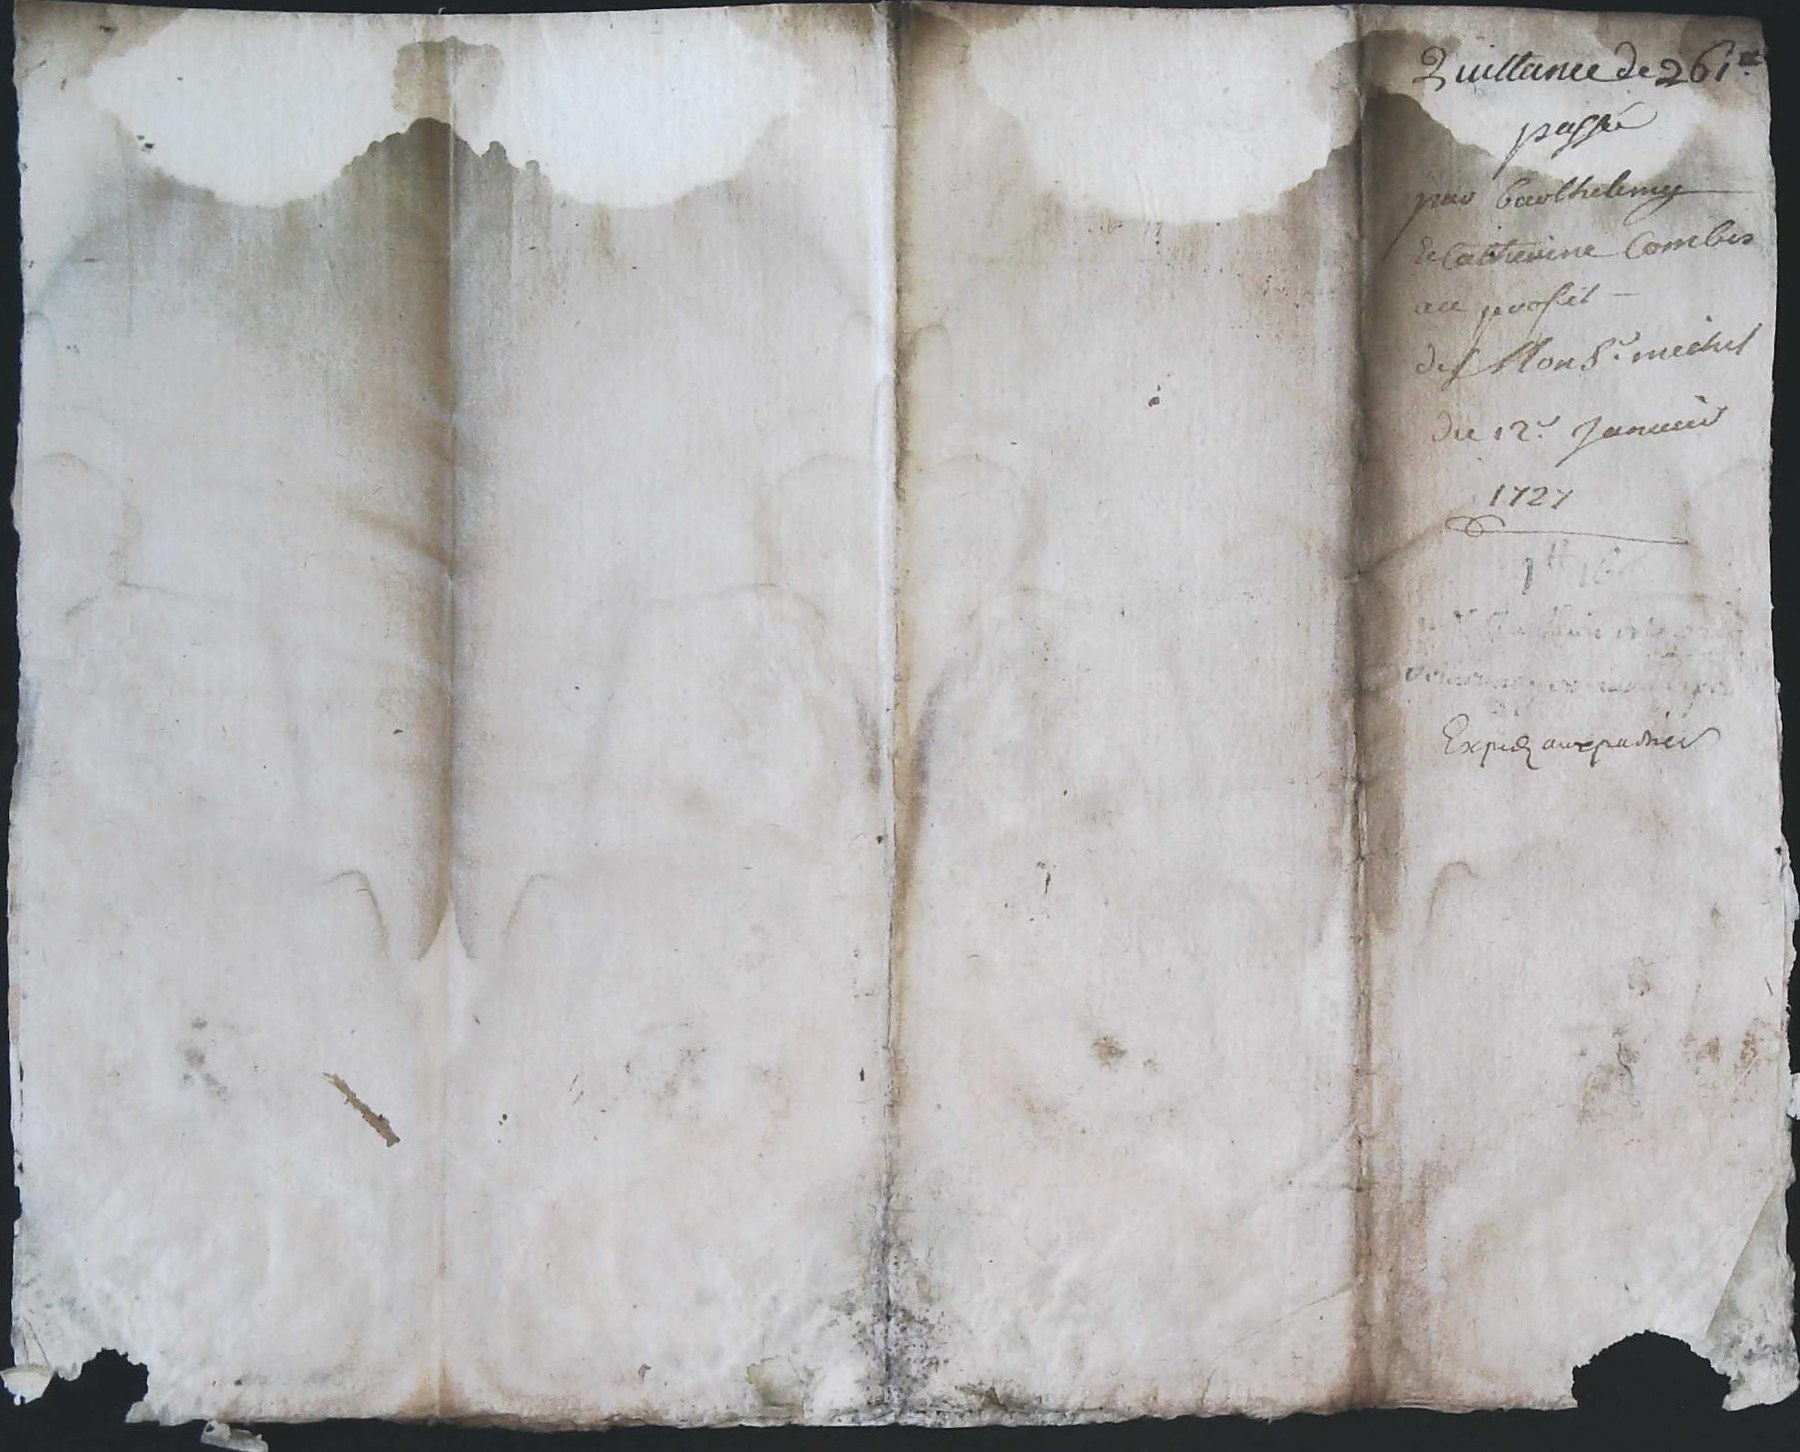 Quittance de 261 ₶
passée
par barthelemy
& Catherine Combes
au profit
de Mon Sr. michel
du 12e. Janvier
1727
1 ₶
Exped aux parties